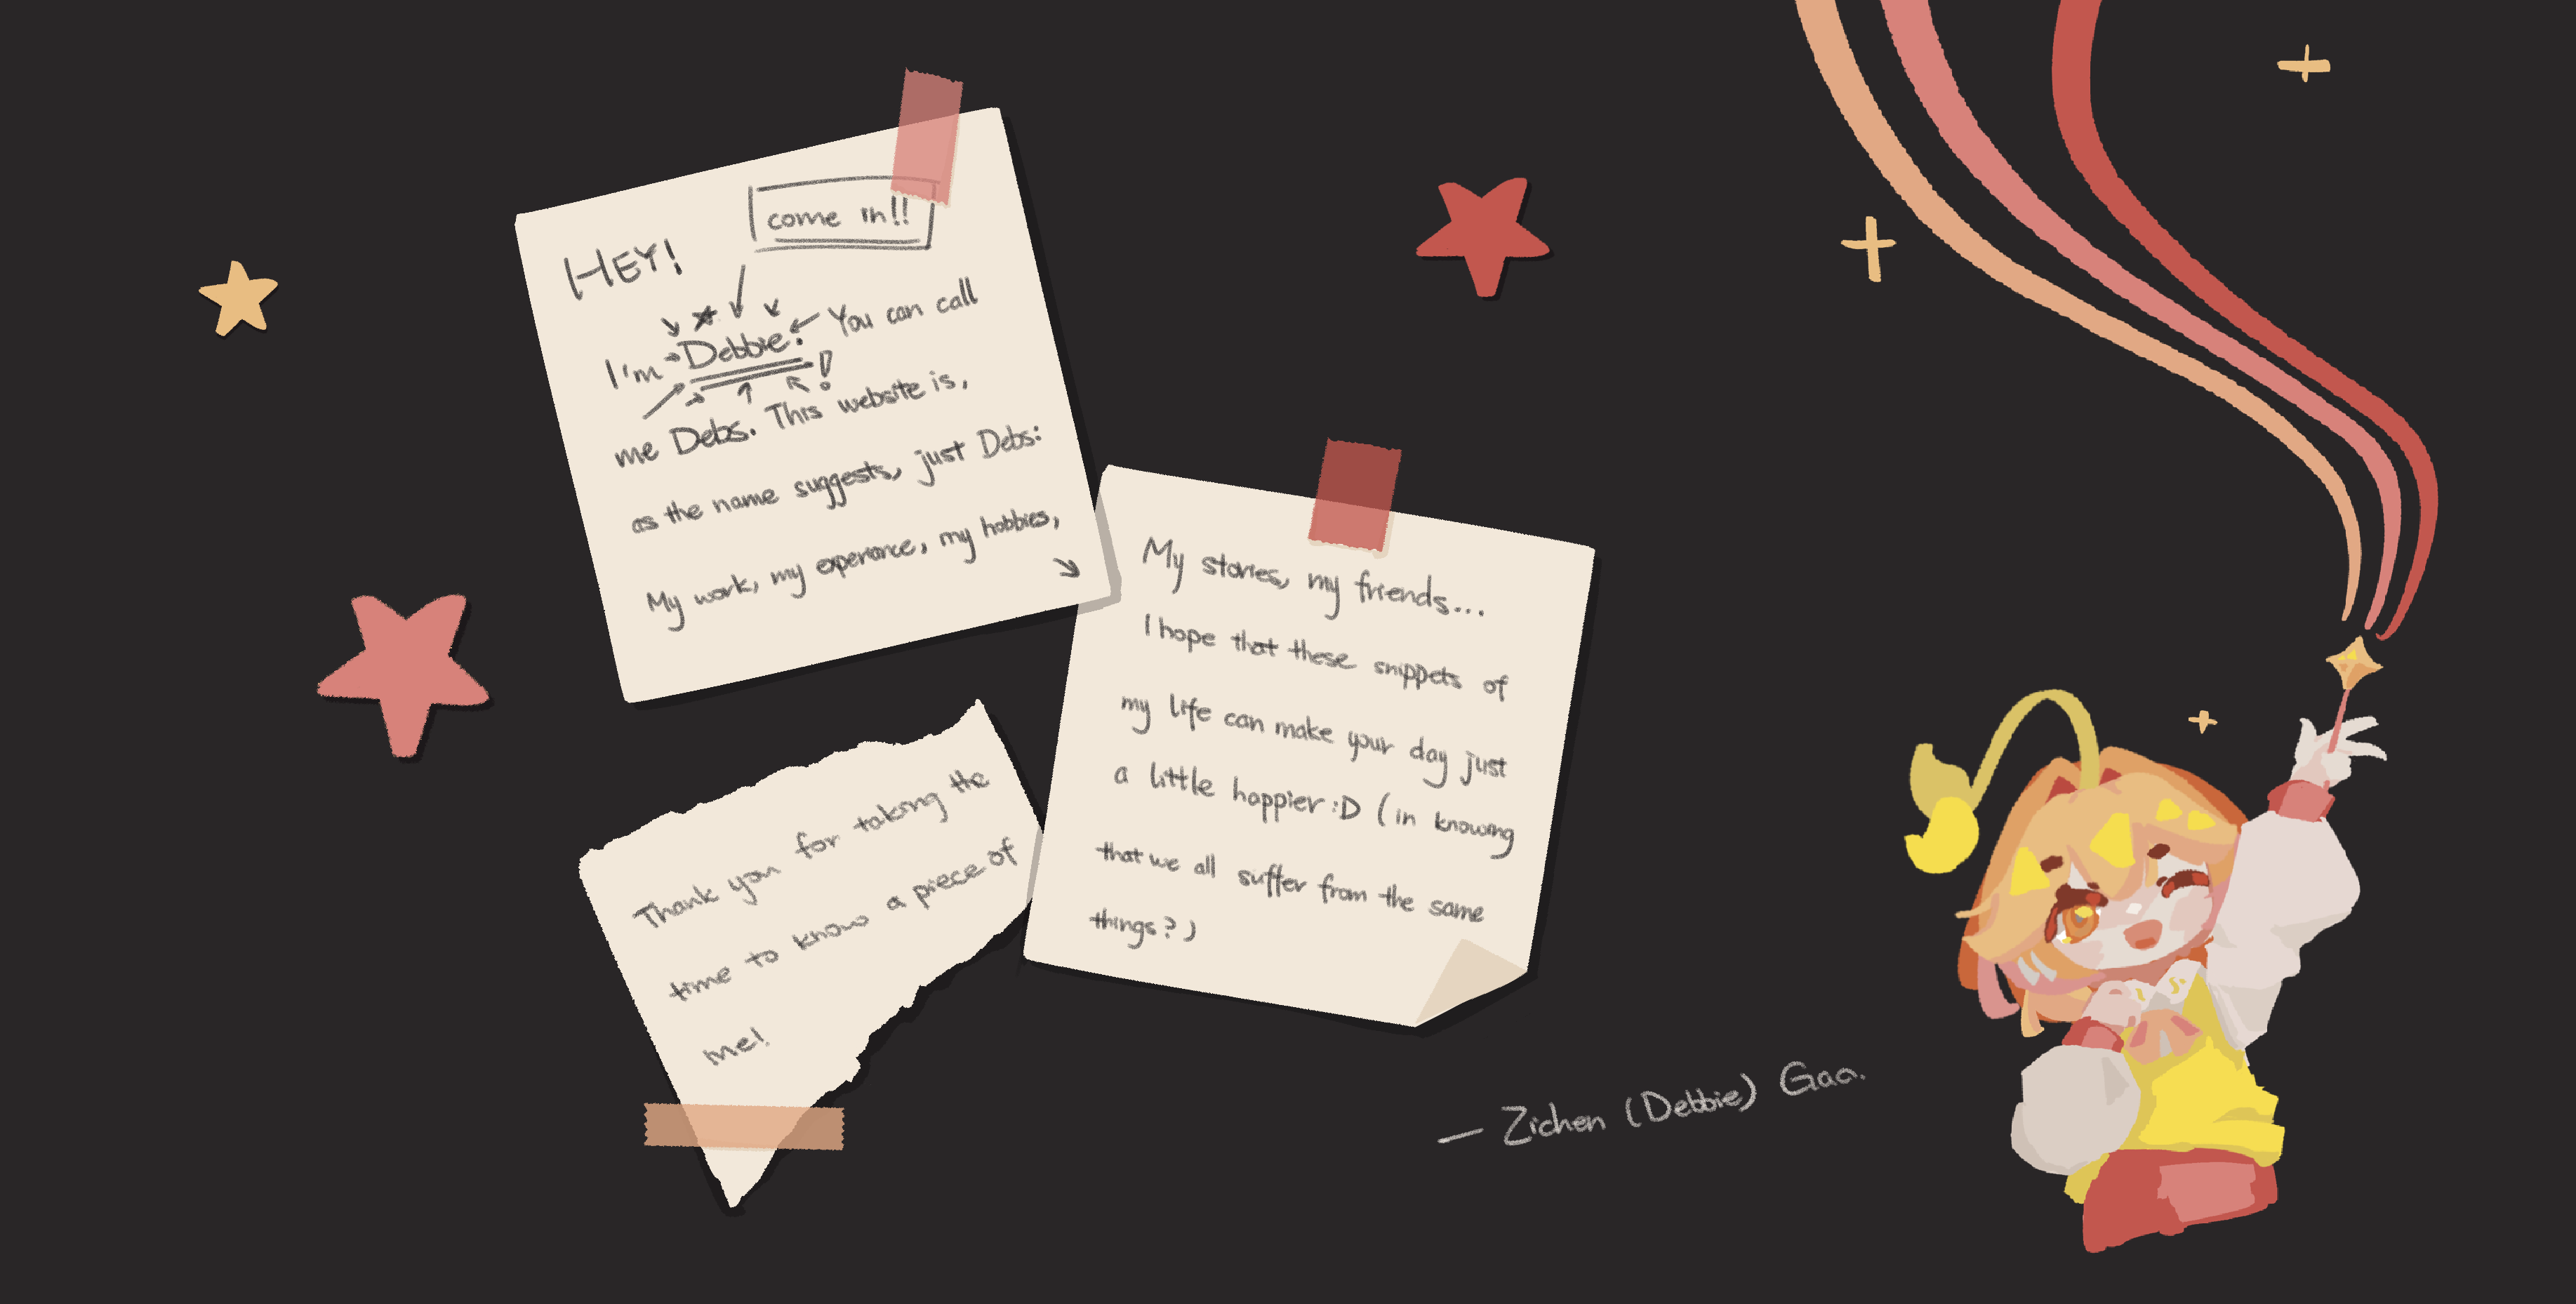 come in!!
HEY!
I'm Debbie! You can call
me Debs. This website is,
as the name suggests, just Debs:
My work, my experience, my hobbies,
My stories, my friends...
I hope that these snippets of
my life can make your day just
a little happier :D (in knowing
that we all suffer from the same
things?)
Thank you for taking the
time to know a piece of
me!
— Zichen (Debbie) Gao.